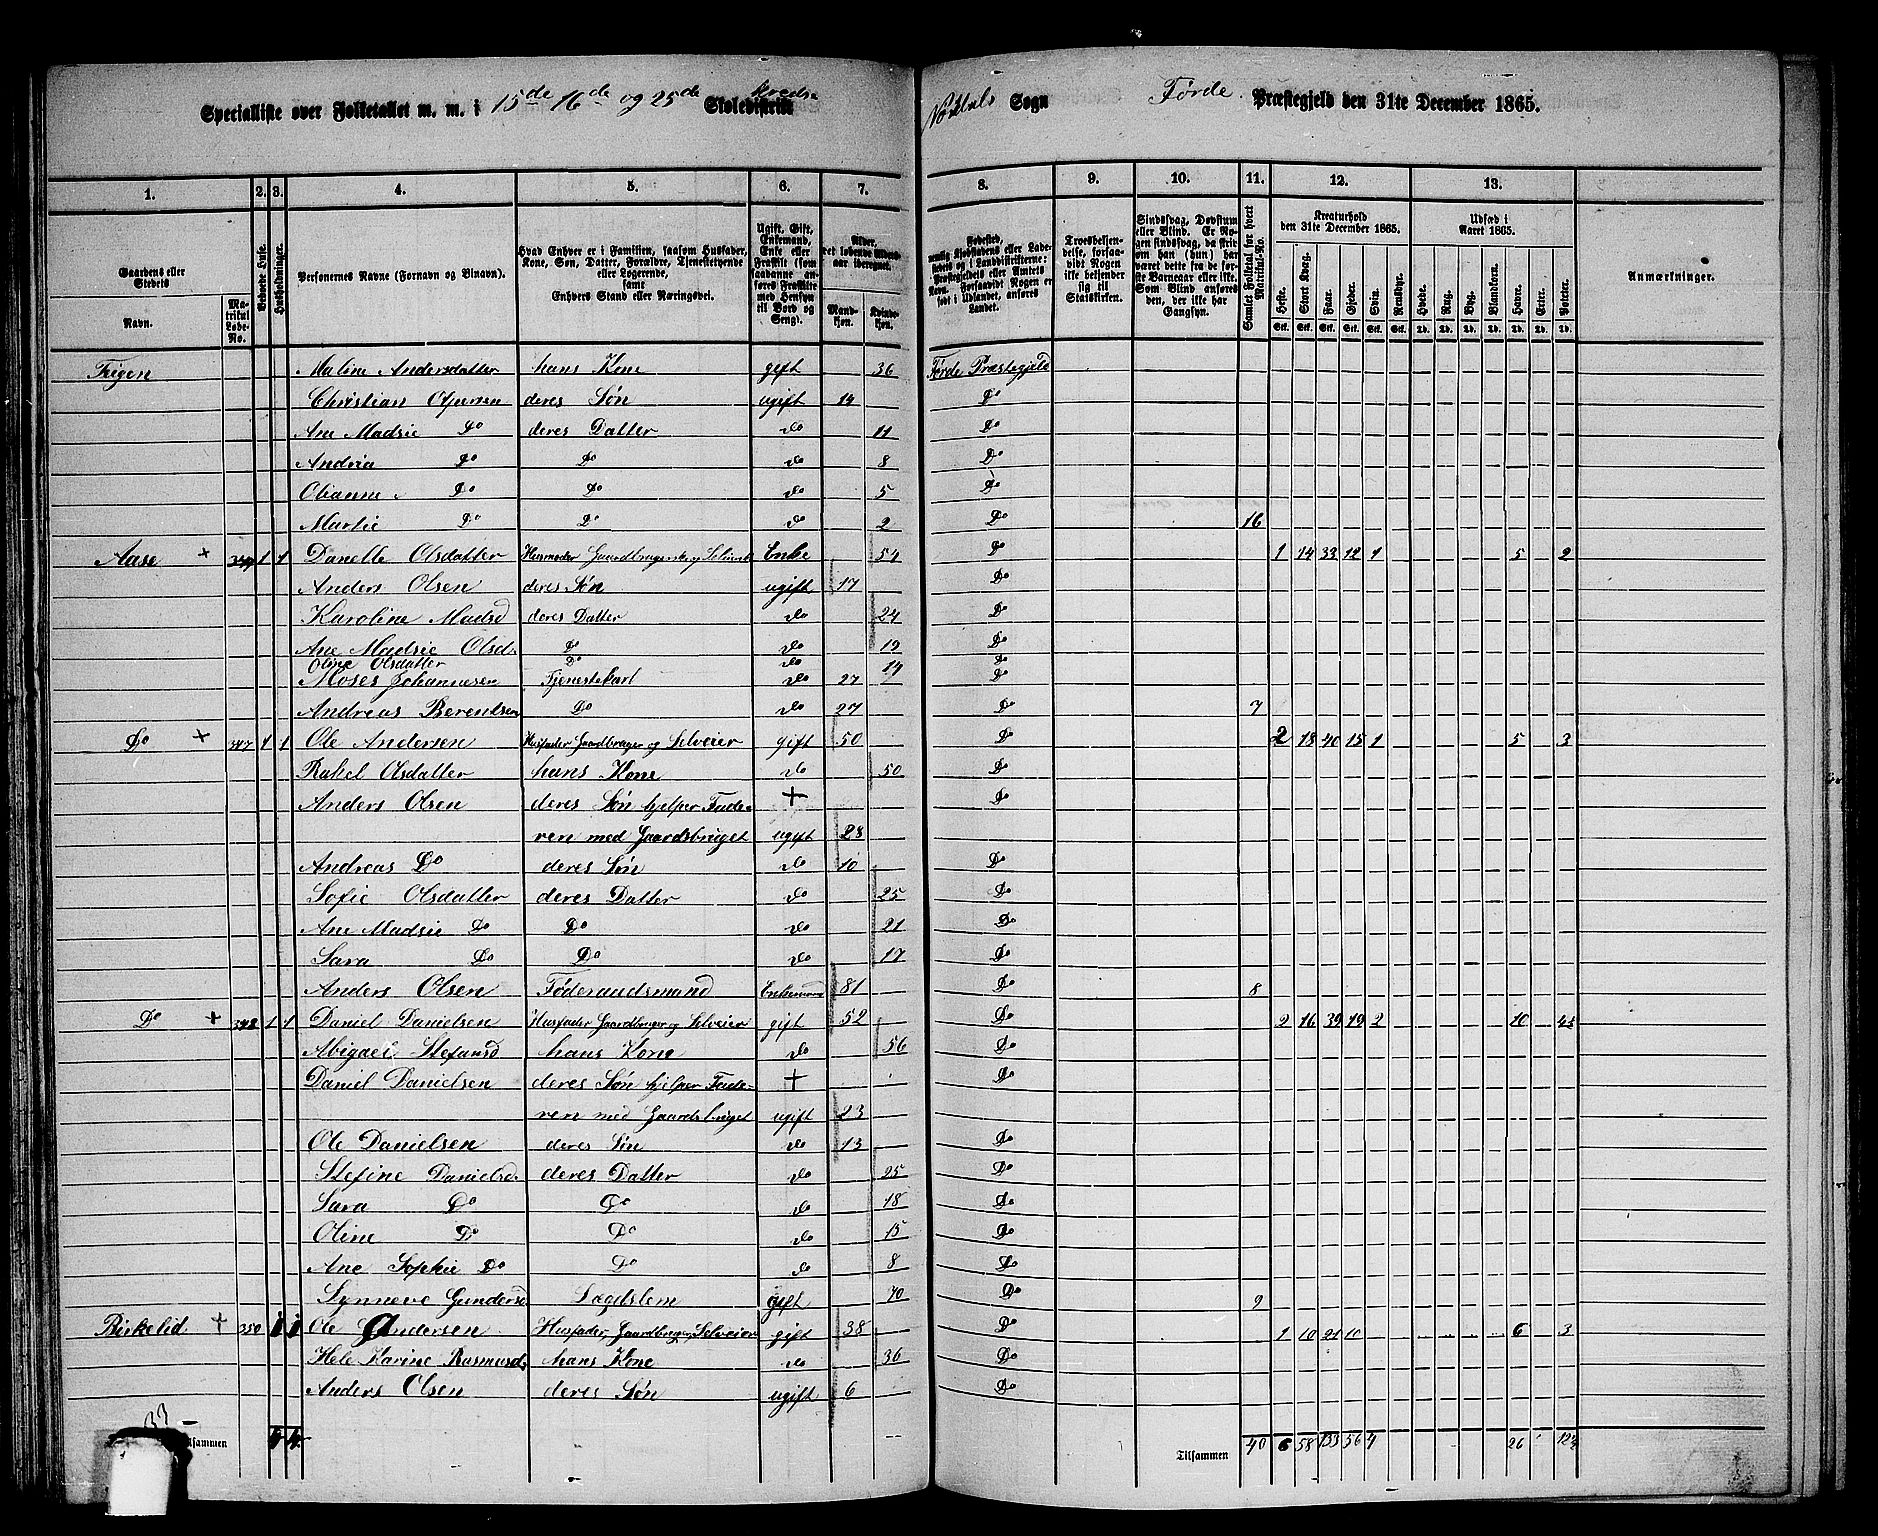 Specialliste over Folketallet m. m. i 15de 16de og 25de Skoledistrikt kreds Sogn Førde Præstegjeld den 31te December 1865.
1. 2. 3. 4. 5. 6. 7. 8. 9. 10. 11. 12. 13.
Gaardens eller Stedets Navn.
Matrikul Løbe-No.
Beboede Huse.
Husholdninger.
Personernes Navne (Fornavn og Binavn).
Hvad Enhver er i Familien, saasom Husfader, Kone, Søn, Datter, Forældre, Tjenestetyende eller Logerende, samt Enhvers Stand eller Næringsvei.
Ugift, Gift, Enkemand, Enke eller Fraskilt (saadanne anføres Fraskilte med Hensyn til Bord og Seng).
Alder, det løbende Alders-aar iberegnet.
Mandkjøn.
Kvindekjøn.
Fødested,
Troesbekjendelse, forsaavidt Nogen ikke bekjender sig til Statskirken.
Sindssvag, Døvstum eller Blind. Er Nogen sindssvag, da hvorvidt han (hun) har været dette fra de første Barneaar eller ikke. Som Blind anføres den, der ikke har Gangsyn.
Samlet Folketal for hvert Matrikul-No.
Kreaturhold den 31te December 1865.
Heste. Stort Kvæg. Faar. Gjeder. Svin. Rensdyr.
Udsæd i Aaret 1865.
Hvede. Rug. Byg. Blandkorn. Havre. Erter. Poteter.
Anmærkninger.
Malene Andersdatter hans Kone gift 36 Førde Præstegjeld
Christian deres Søn ugift 14 Do
Ane Madsie Do deres Datter do 11 Do
Andria Do Do do 8 Do
Olianne Do Do do 5 Do
Martie Do Do do 2 Do 16
Aase + 1 1 Danelle Olsdatter Enke 54 Do 1 14 33 12 1 5 2
Anders Olsen deres Søn ugift 17 Do
Karoline Madsd deres Datter do 24 Do
Ane Madsie Olsd. Do do 19 Do
Oline Olsdatter Do do 14 Do
Moses Johannesen Tjenestekarl do 27 Do
Andreas Berentsen Do do 27 Do 7
Do + 347 1 1 Ole Andersen Husfader Gaardbruger og Selveier gift 50 Do 2 18 40 15 1 5 3
Rakel Olsdatter hans Kone do 50 Do
Anders Olsen deres Søn hjelper Fade- + Do
ren med Gaardsbruget ugift 28
Andreas Do deres Søn do 10 Do
Sofie Olsdatter deres Datter do 25 Do
Ane Madsie Do Do do 21 Do
Sara Do Do do 17 Do
Anders Olsen Føderaadsmand Enkemand 81 Do 8
Do + 348 1 1 Daniel Danielsen Husfader Gaardbruger og Selveier gift 52 Do 2 16 39 19 2 10
Abigael Stefansd hans Kone do 56 Do
Daniel Danielsen deres Søn hjelper Fade- + Do
ren med Gaardsbruget ugift 23
Ole Danielsen deres Søn do 13 Do
Stefine Danielsd. deres Datter do 25 Do
Sara Do Do do 18 Do
Oline Do Do do 15 Do
Ane Sophie Do Do do 8 Do
Synneve Gundersd. Lægdslem gift 70 Do 9
Birkelid + 350 1 1 Ole Andersen Husfader, Gaardbruger, Selveier gift 38 Do 1 10 21 10 6 3
Hele Karine Rasmusd. hans Kone do 36 Do
Anders Olsen deres Søn ugift 6 Do
33
Tilsammen 4 4 Tilsammen 40 6 58 133 56 4 26